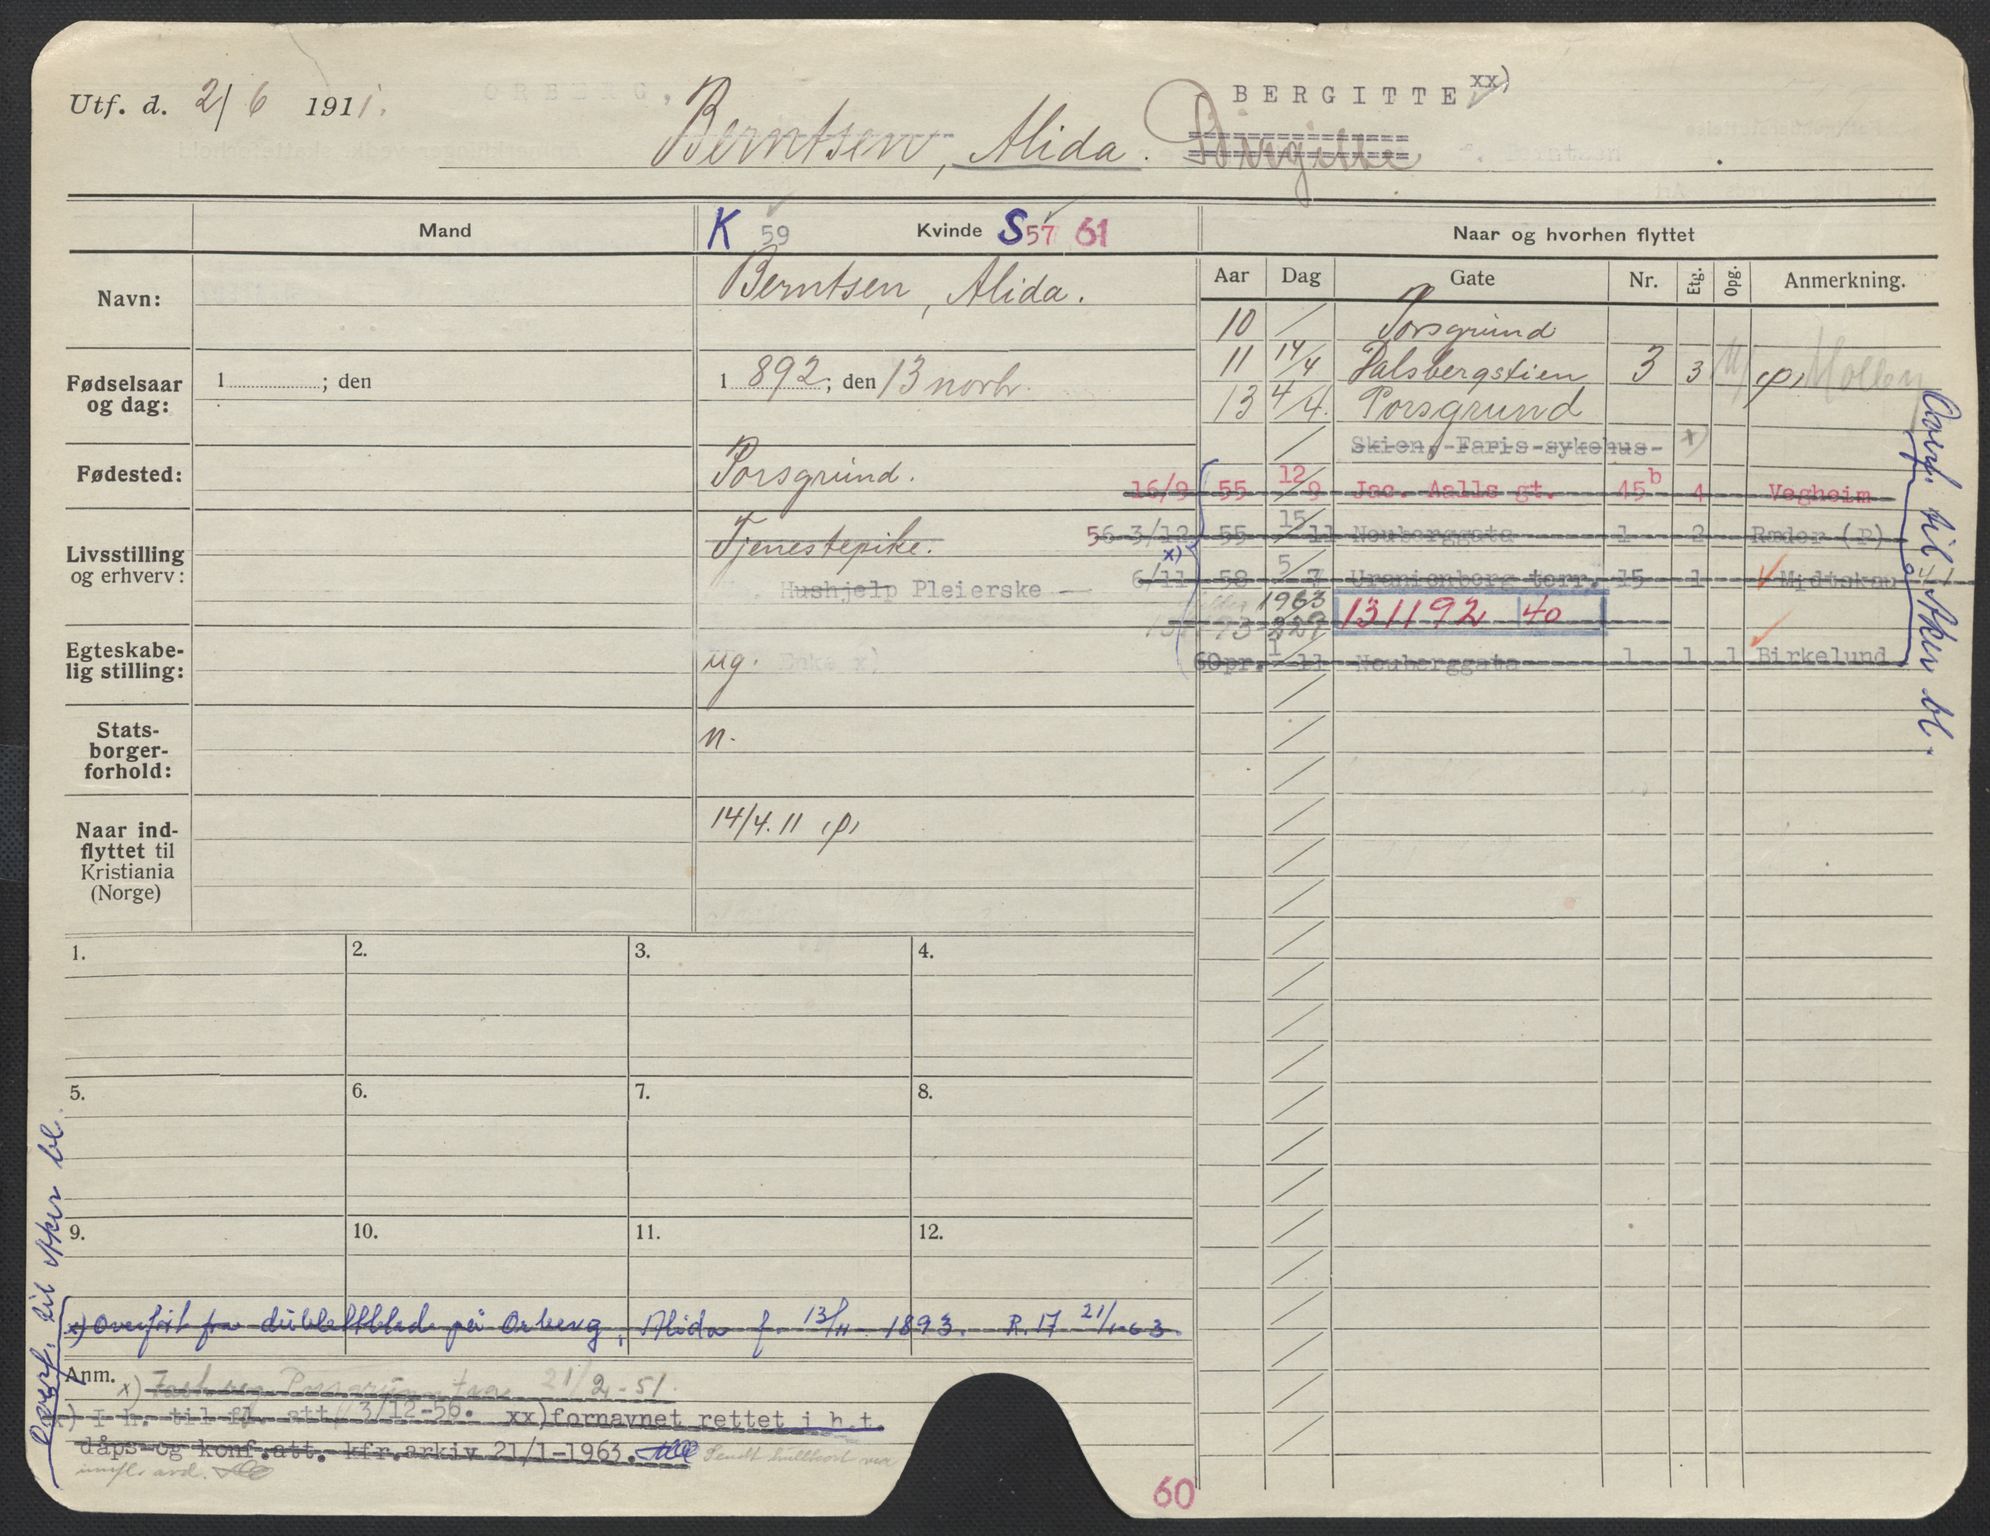 Utf. d. 2/6 1911. ORBERG, BERGITTE xx)
Berntsen, Alida. Birgitte
Mand K 59 Kvinde S 57 61 Naar og hvorhen flyttet
Aar Dag Gate Nr. Etg. Opg. Anmerkning.
Navn: Berntsen, Alida.
10 Porsgrund
Fødselsaar og dag: 1 ; den 1 892; den 13 novbr.
11 14/4 Dalsbergstien 3 3 Møller
13 4/4. Porsgrund
Skien, Faris sykehus x)
Fødested: Porsgrund.
16/9 55 12/9 Jac. Aalls gt. 45 b 4 Vegheim
Livsstilling og erhverv: Tjenestepike.
56 3/12 55 15/11 Neuberggata 1 2 Ræder (P)
Hushjelp Pleierske
x) 6/11 58 5/7 Uranienborg terr. 15 1
1963
131192 40
Egteskabelig stilling: ug. Enke x)
60 pr. 1/11 Neuberggata 1 1 1 Birkelund
Overf. til Aker bl.
Stats-
borger-
forhold: n.
Naar ind-
flyttet til
Kristiania
(Norge) 14/4. 11
1. 2. 3. 4.
5. 6. 7. 8.
9. 10. 11. 12.
Overf. til Aker bl.
x) Overført fra dublettblad på Orberg, Alida f. 13/11 1893. R. 17 21/1-63.
Anm.
x) 21/2-51.
x) I h. til fl. att. 3/12-56. xx) fornavnet rettet i h.t.
dåps- og konf.att. kfr. arkiv 21/1-1963. Sendt hullkort via
innfl. avd.
60